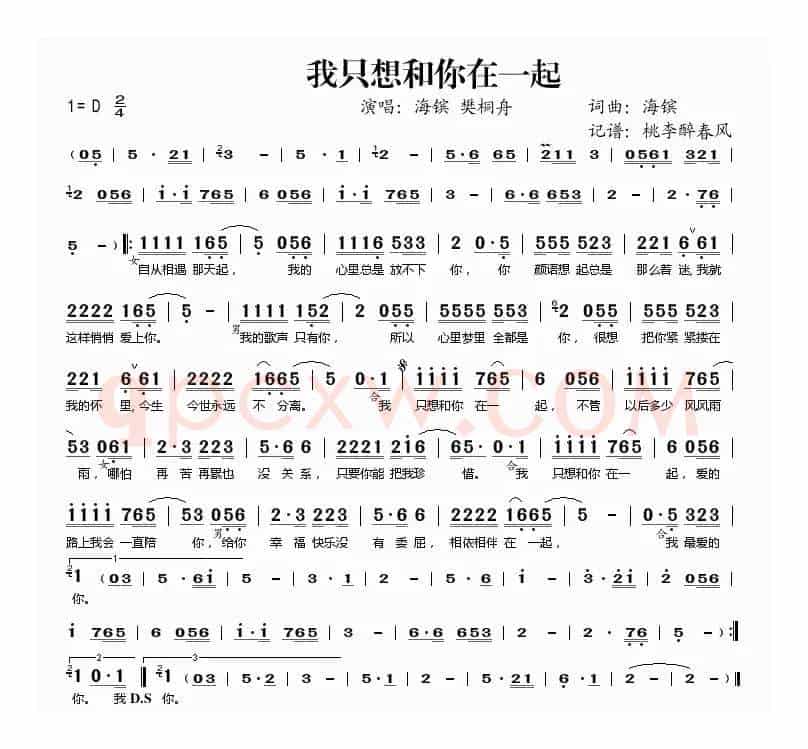 我只想和你在一起
1=D 2/4 演唱：海镔 樊桐舟 词曲：海镔
记谱：桃李醉春风
(05 | 5 · 21 | 23 - | 5 · 1 | 12 - | 5·6 65 | 211 3 | 0561 321 |
12 056 | i·i 765 | 6 056 | i·i 765 | 3 - | 6·6 653 | 2 - | 2·76 |
5 - ) ‖: 1111 165 | 5 056 | 1116 533 | 2 0·5 | 555 523 | 221 6 61 |
女 自从相遇 那天起， 我的 心里总是 放不下 你， 你 颜语想 起总是 那么着 迷，我就
2222 165 | 5 - | 1111 152 | 2 055 | 5555 553 | 62 055 | 335 523 |
这样悄悄 爱上你。 男 我的歌声 只有你， 所以 心里梦里 全都是 你， 很想 把你紧 紧搂在
221 6 61 | 2222 1665 | 5 0·1 | iiii 765 | 6 056 | iiii 765 |
我的怀 里，今生 今世永远 不 分离。 合 我 只想和你 在 一 起， 不管 以后多少 风风雨
53 061 | 2·3 223 | 5·6 6 | 2221 2i6 | 65· 0·1 | iiii 765 | 6 056 |
雨，女 哪怕 再 苦 再累也 没 关 系， 只要你能 把我珍 惜。 合 我 只想和你 在 一 起，爱的
iiii 765 | 53 056 | 2·3 223 | 5·6 6 | 2222 1665 | 5 - | 0·5 323 |
路上我会 一直陪 你，男 给你 幸 福 快乐没 有 委 屈， 相依相伴 在 一起， 合 我 最爱的
1
21 (03 | 5 · 6i | 5 - | 5 · 6 | i - | 3 · 2i | 2 - | 2 056 |
你。
i 765 | 6 056 | i·i 765 | 3 - | 6·6 653 | 2 - | 2·76 | 5 - ) :‖
2 3
21 0·1 ‖ 21 (03 | 5·2 | 3 - | 3·51 | 2 - | 2·5 | 21 - | 1 - ) ‖
你。 我 D.S 你。
qpcxw.COM